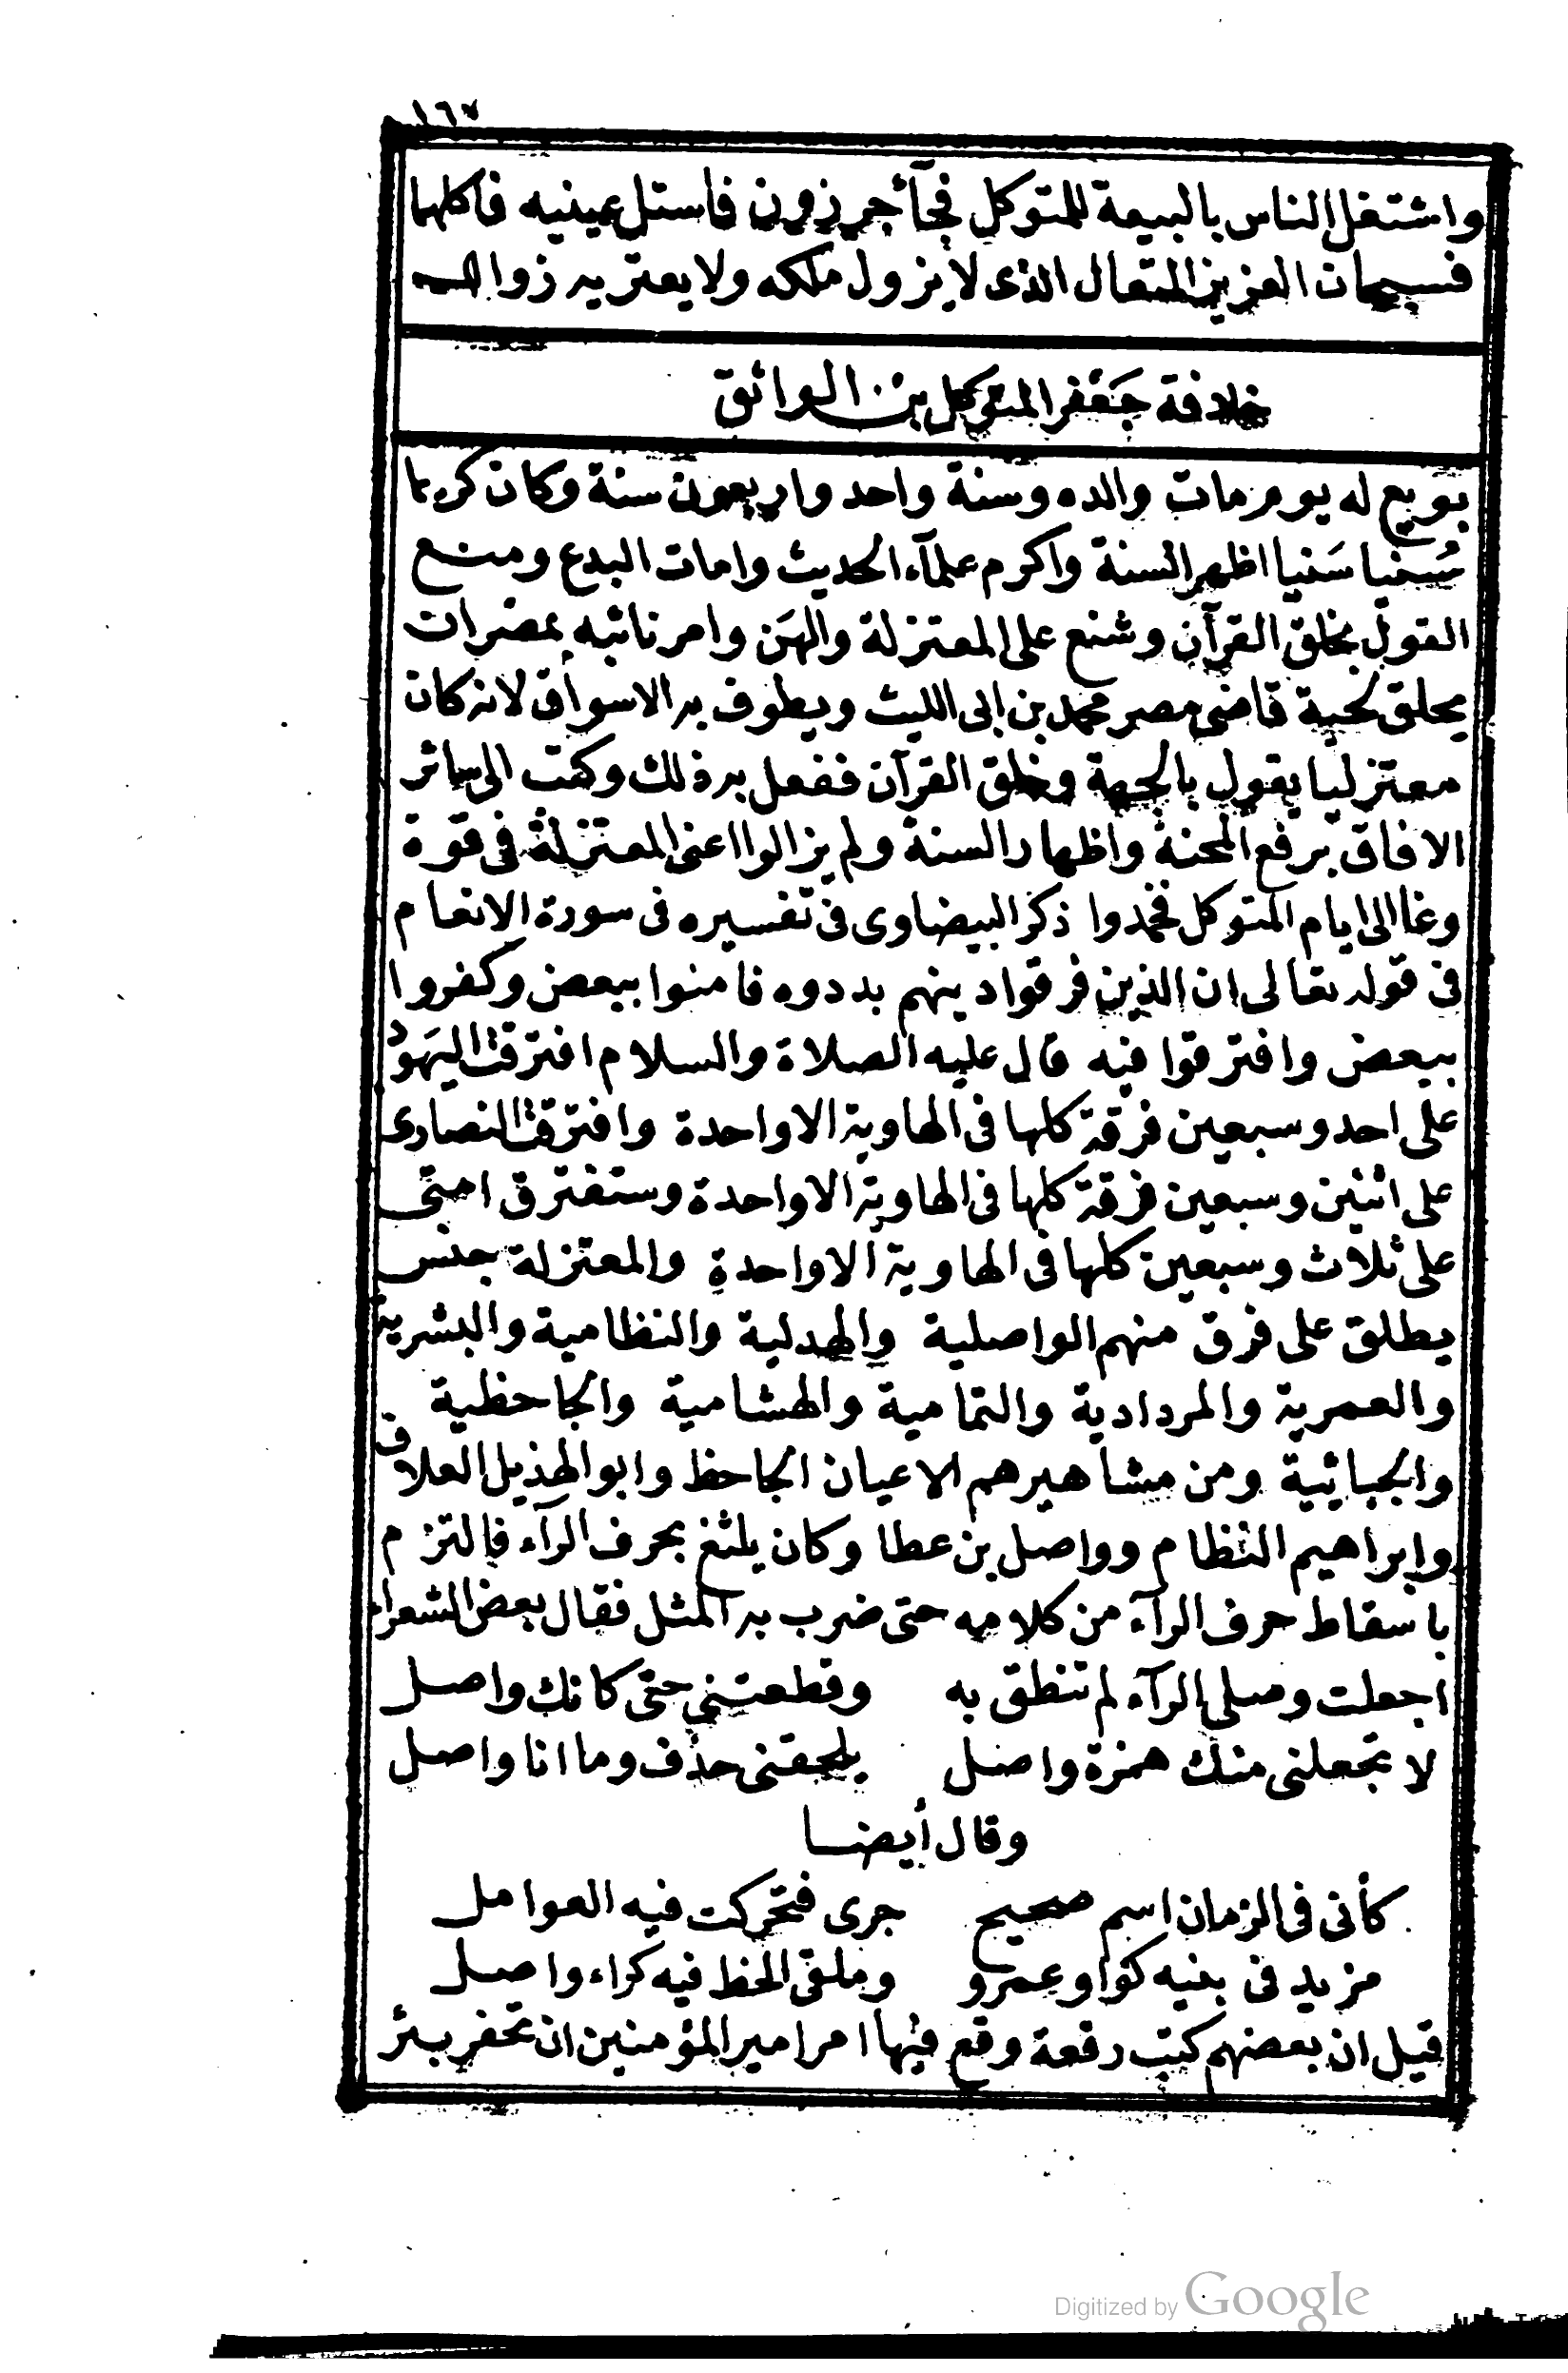 ١٦٧
واشتغل الناس بالبيعة للمتوكل فجآء جرزون فاستل عينيه فاكلهما
فسبحان العزيز المتعال الذى لا يزول ملكه ولا يعتريه زوال
خلافة جعفر المتوكل بن الواثق
بويع له يوم مات والده وسنة واحد واربعون سنة وكان كريما
سُخيا سَنيا اظهر السنة واكرم علمآء الحديث وامات البدع ومنع
القول بخلق القرآن وشنع على المعتزلة والهَن وامر نائبه بمصرات
يحلق لحية قاضى مصر محمد بن ابى الليث ويطوف به الاسواق لانه كان
معتزليا يقول بالجهة وخلق القرآن ففعل به ذلك وكتب الى سائر
الافاق برفع المحنة واظهار السنة ولم يزالوا اعنى المعتزلة فى قوة
ونما الى ايام المتوكل فخمدوا ذكر البيضاوى فى تفسيره فى سورة الانعام
فى قوله تعالى ان الذين فرقوا دينهم بددوه فامنوا ببعض وكفروا
ببعض وافترقوا فيه قال عليه الصلاة والسلام افترقت اليَهود
على احد وسبعين فرقة كلها فى الهاوية الا واحدة وافترقت النصارى
على اثنين وسبعين فرقة كلها فى الهاوية الا واحدة وستفترق امتى
على ثلاث وسبعين كلها فى الهاوية الا واحدة والمعتزلة جنس
يطلق على فرق منهم الواصلية والهدلية والنظامية والبشرية
والعمرية والمردادية والثمامية والهشامية والجاحظية
والجبائية ومن مشاهيرهم الاعيان الجاحظ وابو الهذيل العلاف
وابراهيم النظام وواصل بن عطا وكان يلثغ بحرف الرآء فالتزم
باسقاط حرف الرآء من كلامه حتى ضرب به المثل فقال بعض الشعراء
اجعلت وصلى الرآء لم تنطق به وقطعتني حتى كانك واصل
لا تجعلنى منك همزة واصل يلحقنى حذف وما انا واصل
وقال أيضا
كأنى فى الزمان اسم صحيح جرى فتحركت فيه العوامل
مزيد فى بنيه كواو عمرو وملقى الحظ فيه كراء واصل
قيل ان بعضهم كتب رقعة وقع فيها امر امير المؤمنين ان تحفر بئر
Digitized by Google